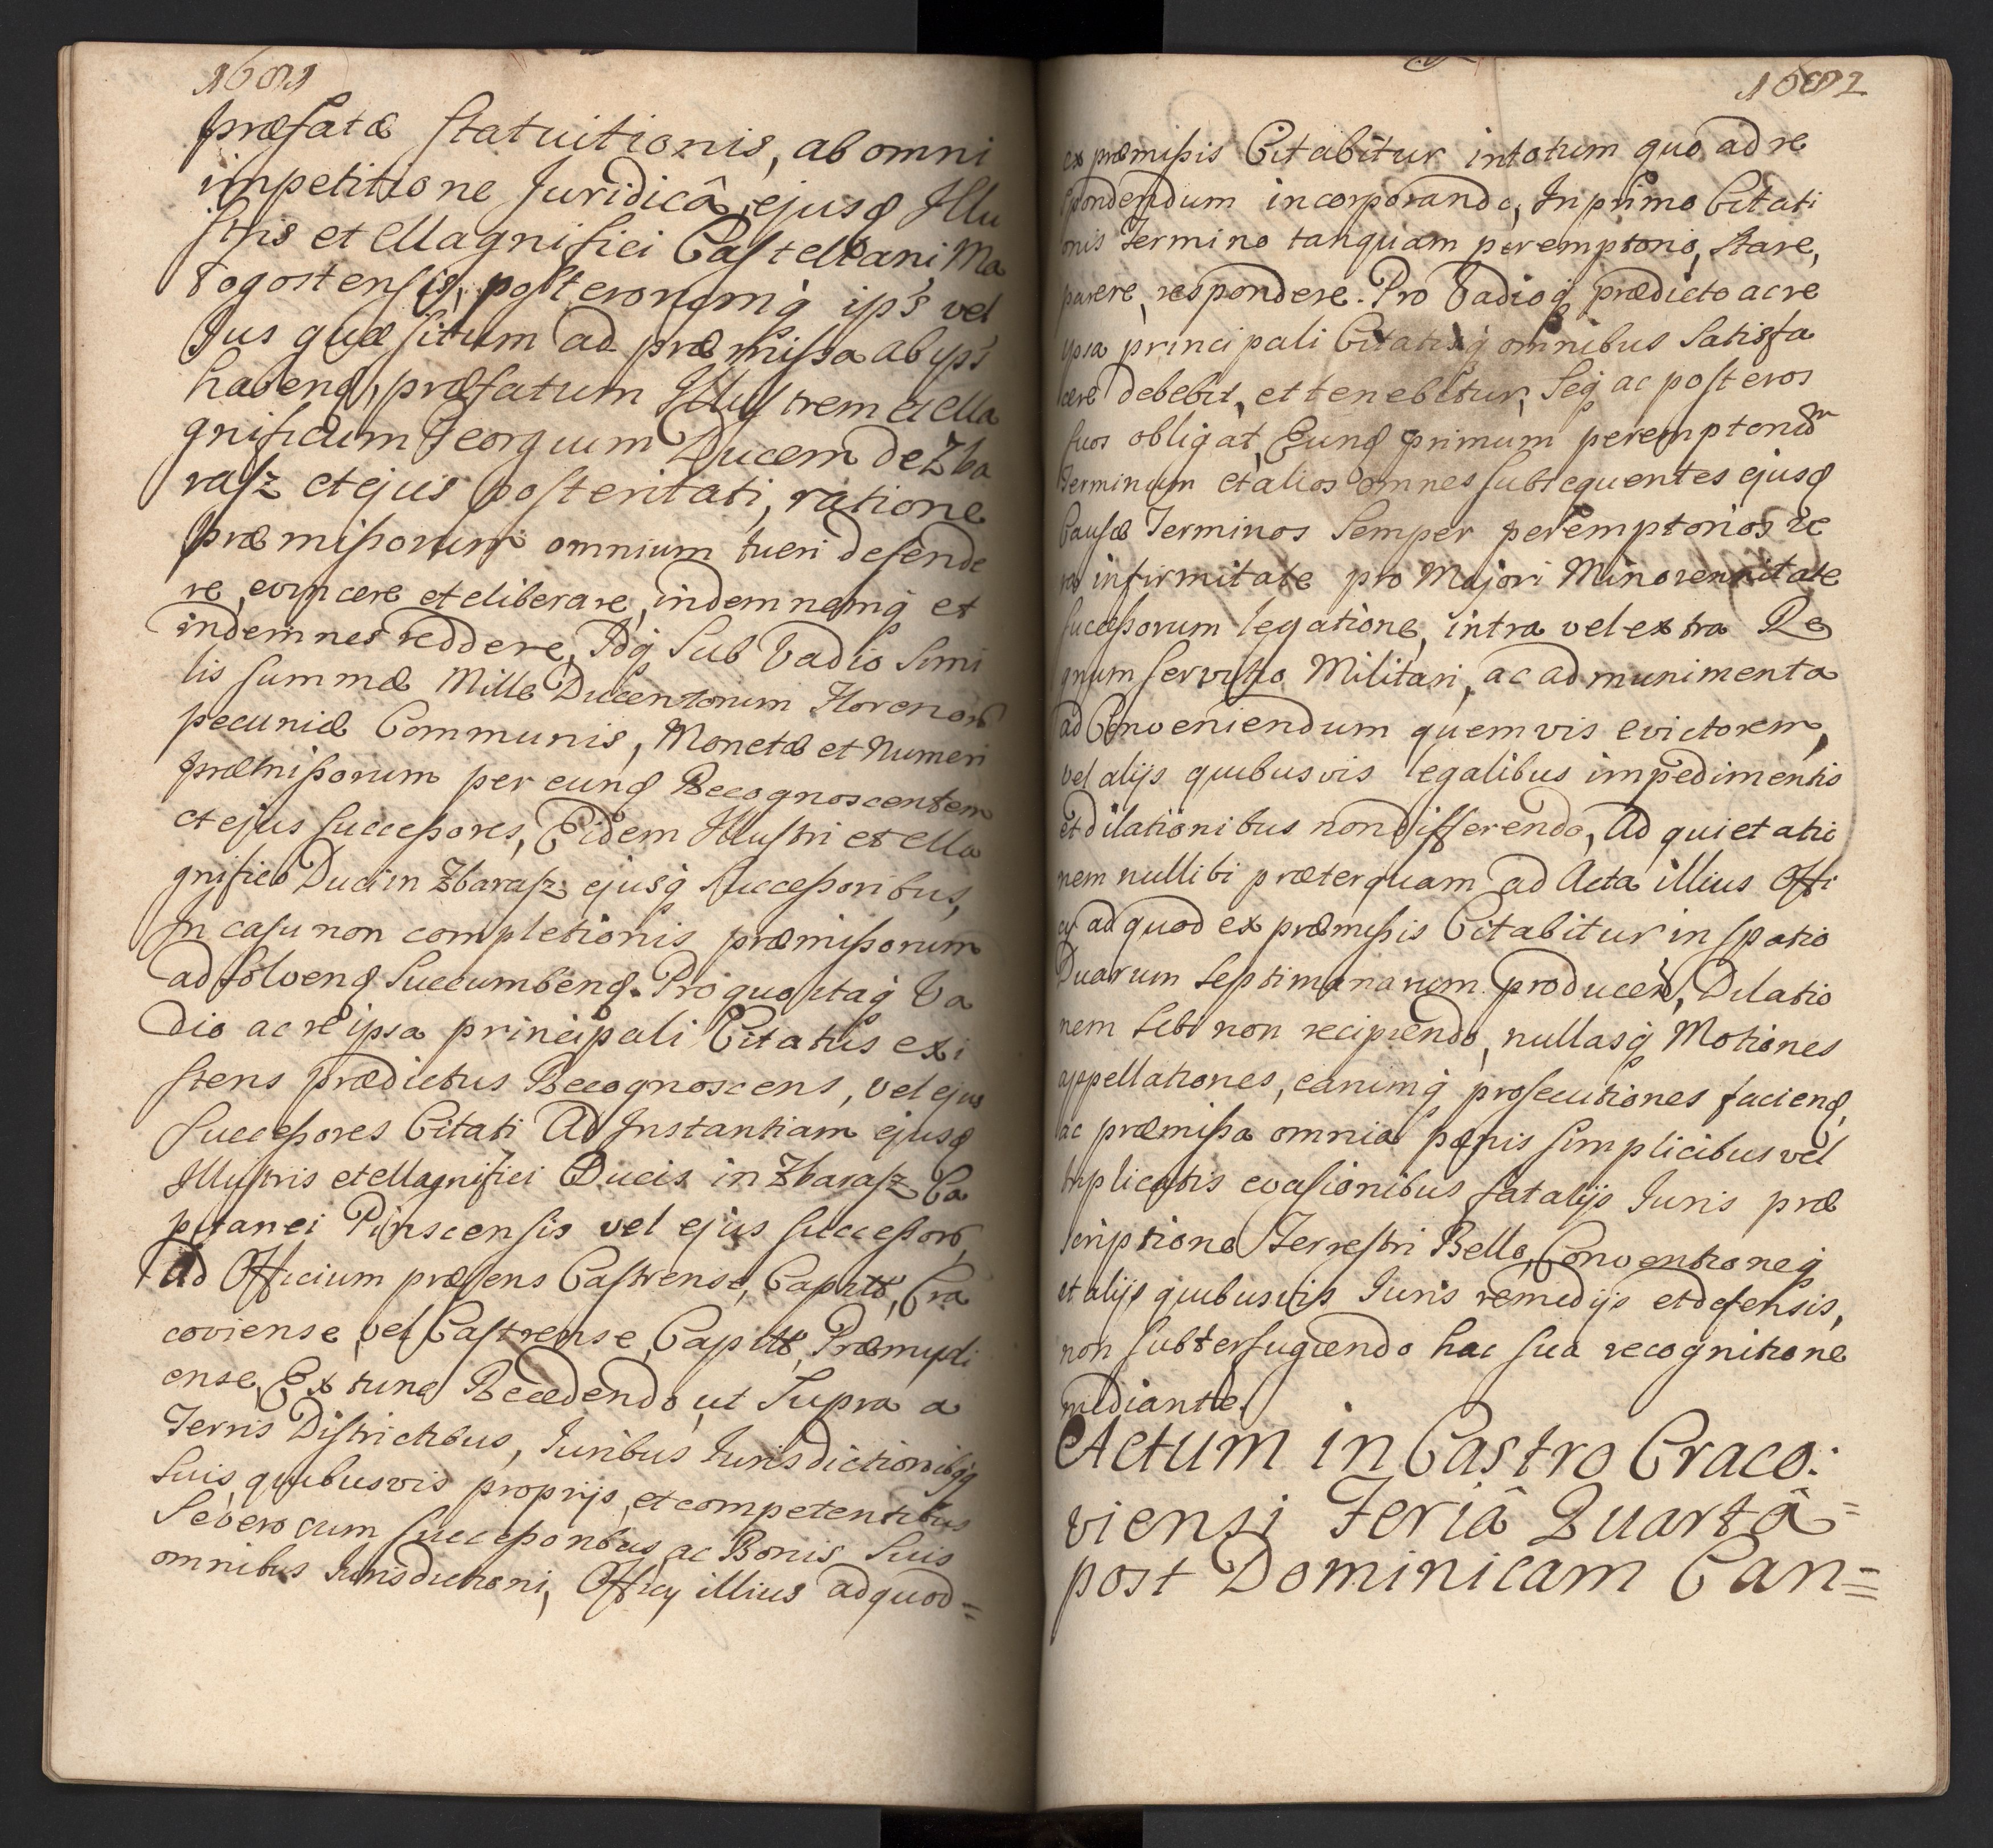 1681
præfatæ statuitionis, ab omni
impetitione Juridicâ, ejusđ Illu
stris et Magnifici Castellani Ma
logostensis, posterorumq́ ips̃ vel
Jus quæsitum ad præmissa ab ips̃
habenđ, præfatum Illustrem et Ma
gnificum Georgium Ducem de Zba
rasz et ejus posteritati, ratione
præmissorum omnium tueri defende
re, evincere et eliberare, indemnemq́ et
indemnes reddere, Idq́ Sub Vadio simi
lis summæ Mille Ducentorum Floreno
pecuniæ Communis, Monetæ et Numeri
præmissorum per eunđ Recognoscentem
et ejus successores, Eidem Illustri et Ma
gnifico Duci in Zbarasz ejusq́ successoribus,
In casu non completionis præmissorum
ad solvenđ Succumbenđ. Pro quo itaq́ Va
dio ac re ipsa principali Citatus exi
stens prædictus Recognoscens, vel ejus
Successores Citati Ad Instantiam ejusđ
Illustris et Magnifici Ducis in Zbarasz Ca
pitanei Pinscensis vel ejus successor,
Ad Officium præsens Castrense, Capitt, Cra
coviense, vel Castrense, Capitt, Præmysli
ense, Ex tunc Recedendo, ut Supra a
Terris Districtibus, Juribus Jurisdictionibq́
Suis quibusvis proprijs, et competentibus
Se vero cum successoribus ac Bonis Suis
omnibus Jurisdictioni, Officij illius ad quod=
1682
ex præmissis Citabitur in totum quo ad re
spondendum incorporando, In primo Citati
onis Termino tanquam peremptorio, Stare,
parere, respondere. Pro Vadioq́ prædicto ac re
ipsa principali Citatisq́ omnibus Satisfa
cere debebit, et tenebitur, Seq́ ac posteros
suos obligat, Eunđ primum peremptoriũ
Terminum et alios omnes subsequentes ejusđ
Causæ Terminos Semper peremptorios ve
ra infirmitate pro Majori Minorennitate
successorum legatione, intra vel extra Re
gnum servitio Militari, ac ad munimenta
ad Conveniendum quemvis evictorem,
vel alijs quibusvis legalibus impedimentis
et dilationibus non differendo, Ad quietatio
nem nullibi præterquam ad Acta illius Offi
cij ad quod ex præmissis Citabitur in spatio
Duarum Septimanarum producen, Dilatio
nem sibi non recipiendo, nullasq́ Motiones
appellationes, earumq́ prosecutiones facienđ,
ac præmissa omnia pænis simplicibus vel
triplicatis evasionibus fatalijs Juris præ
scriptione Terrestri Bello, Conventioneq́
et alijs quibusvis Juris remedijs et defensis,
non subterfugiendo hac sua recognitione
mediante.
Actum in Castro Craco:
viensi Feriâ Quartâ=
post Dominicam Can=